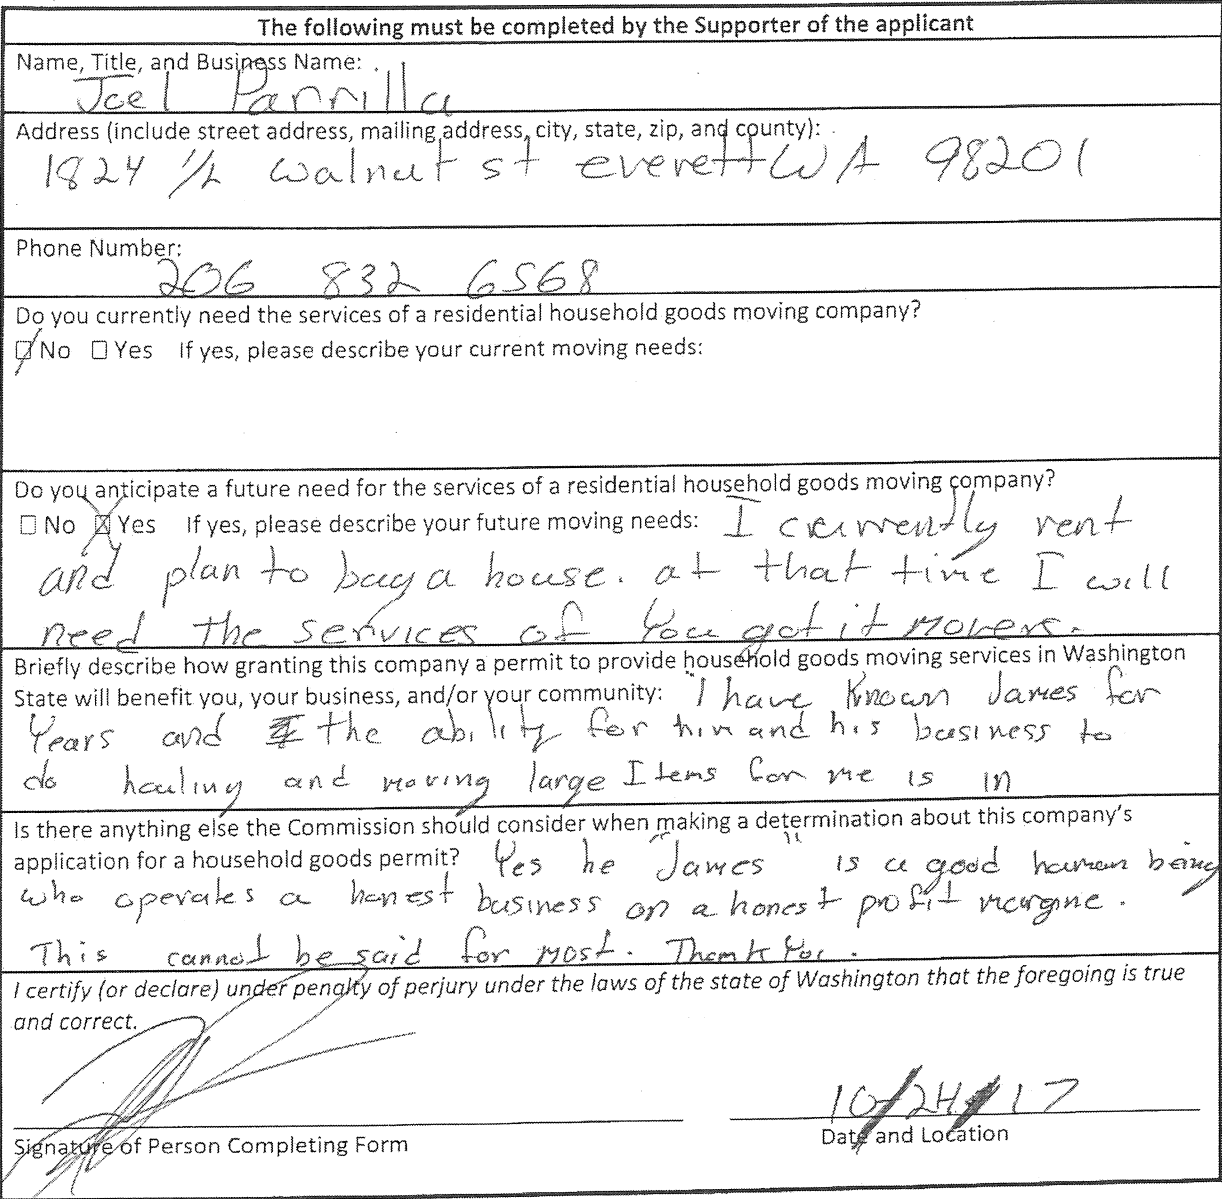 The following must be completed by the Supporter of the applicant
Name, Title, and Business Name:
Joel Parrilla
Address (include street address, mailing address, city, state, zip, and county):
1824 1/2 walnut st everett WA 98201
Phone Number:
206 832 6568
Do you currently need the services of a residential household goods moving company?
☑ No ☐ Yes If yes, please describe your current moving needs:
Do you anticipate a future need for the services of a residential household goods moving company?
☐ No ☒ Yes If yes, please describe your future moving needs: I currently rent
and plan to buy a house. at that time I will
need the services of You got it movers.
Briefly describe how granting this company a permit to provide household goods moving services in Washington
State will benefit you, your business, and/or your community: "I have Known James for
Years and the ability for him and his business to
do hauling and moving large Items for me is in
Is there anything else the Commission should consider when making a determination about this company's
application for a household goods permit? Yes he "James" is a good human being
who operates a honest business on a honest profit margine.
This cannot be said for most. Thank You.
I certify (or declare) under penalty of perjury under the laws of the state of Washington that the foregoing is true
and correct.
10/24/17
Signature of Person Completing Form
Date and Location